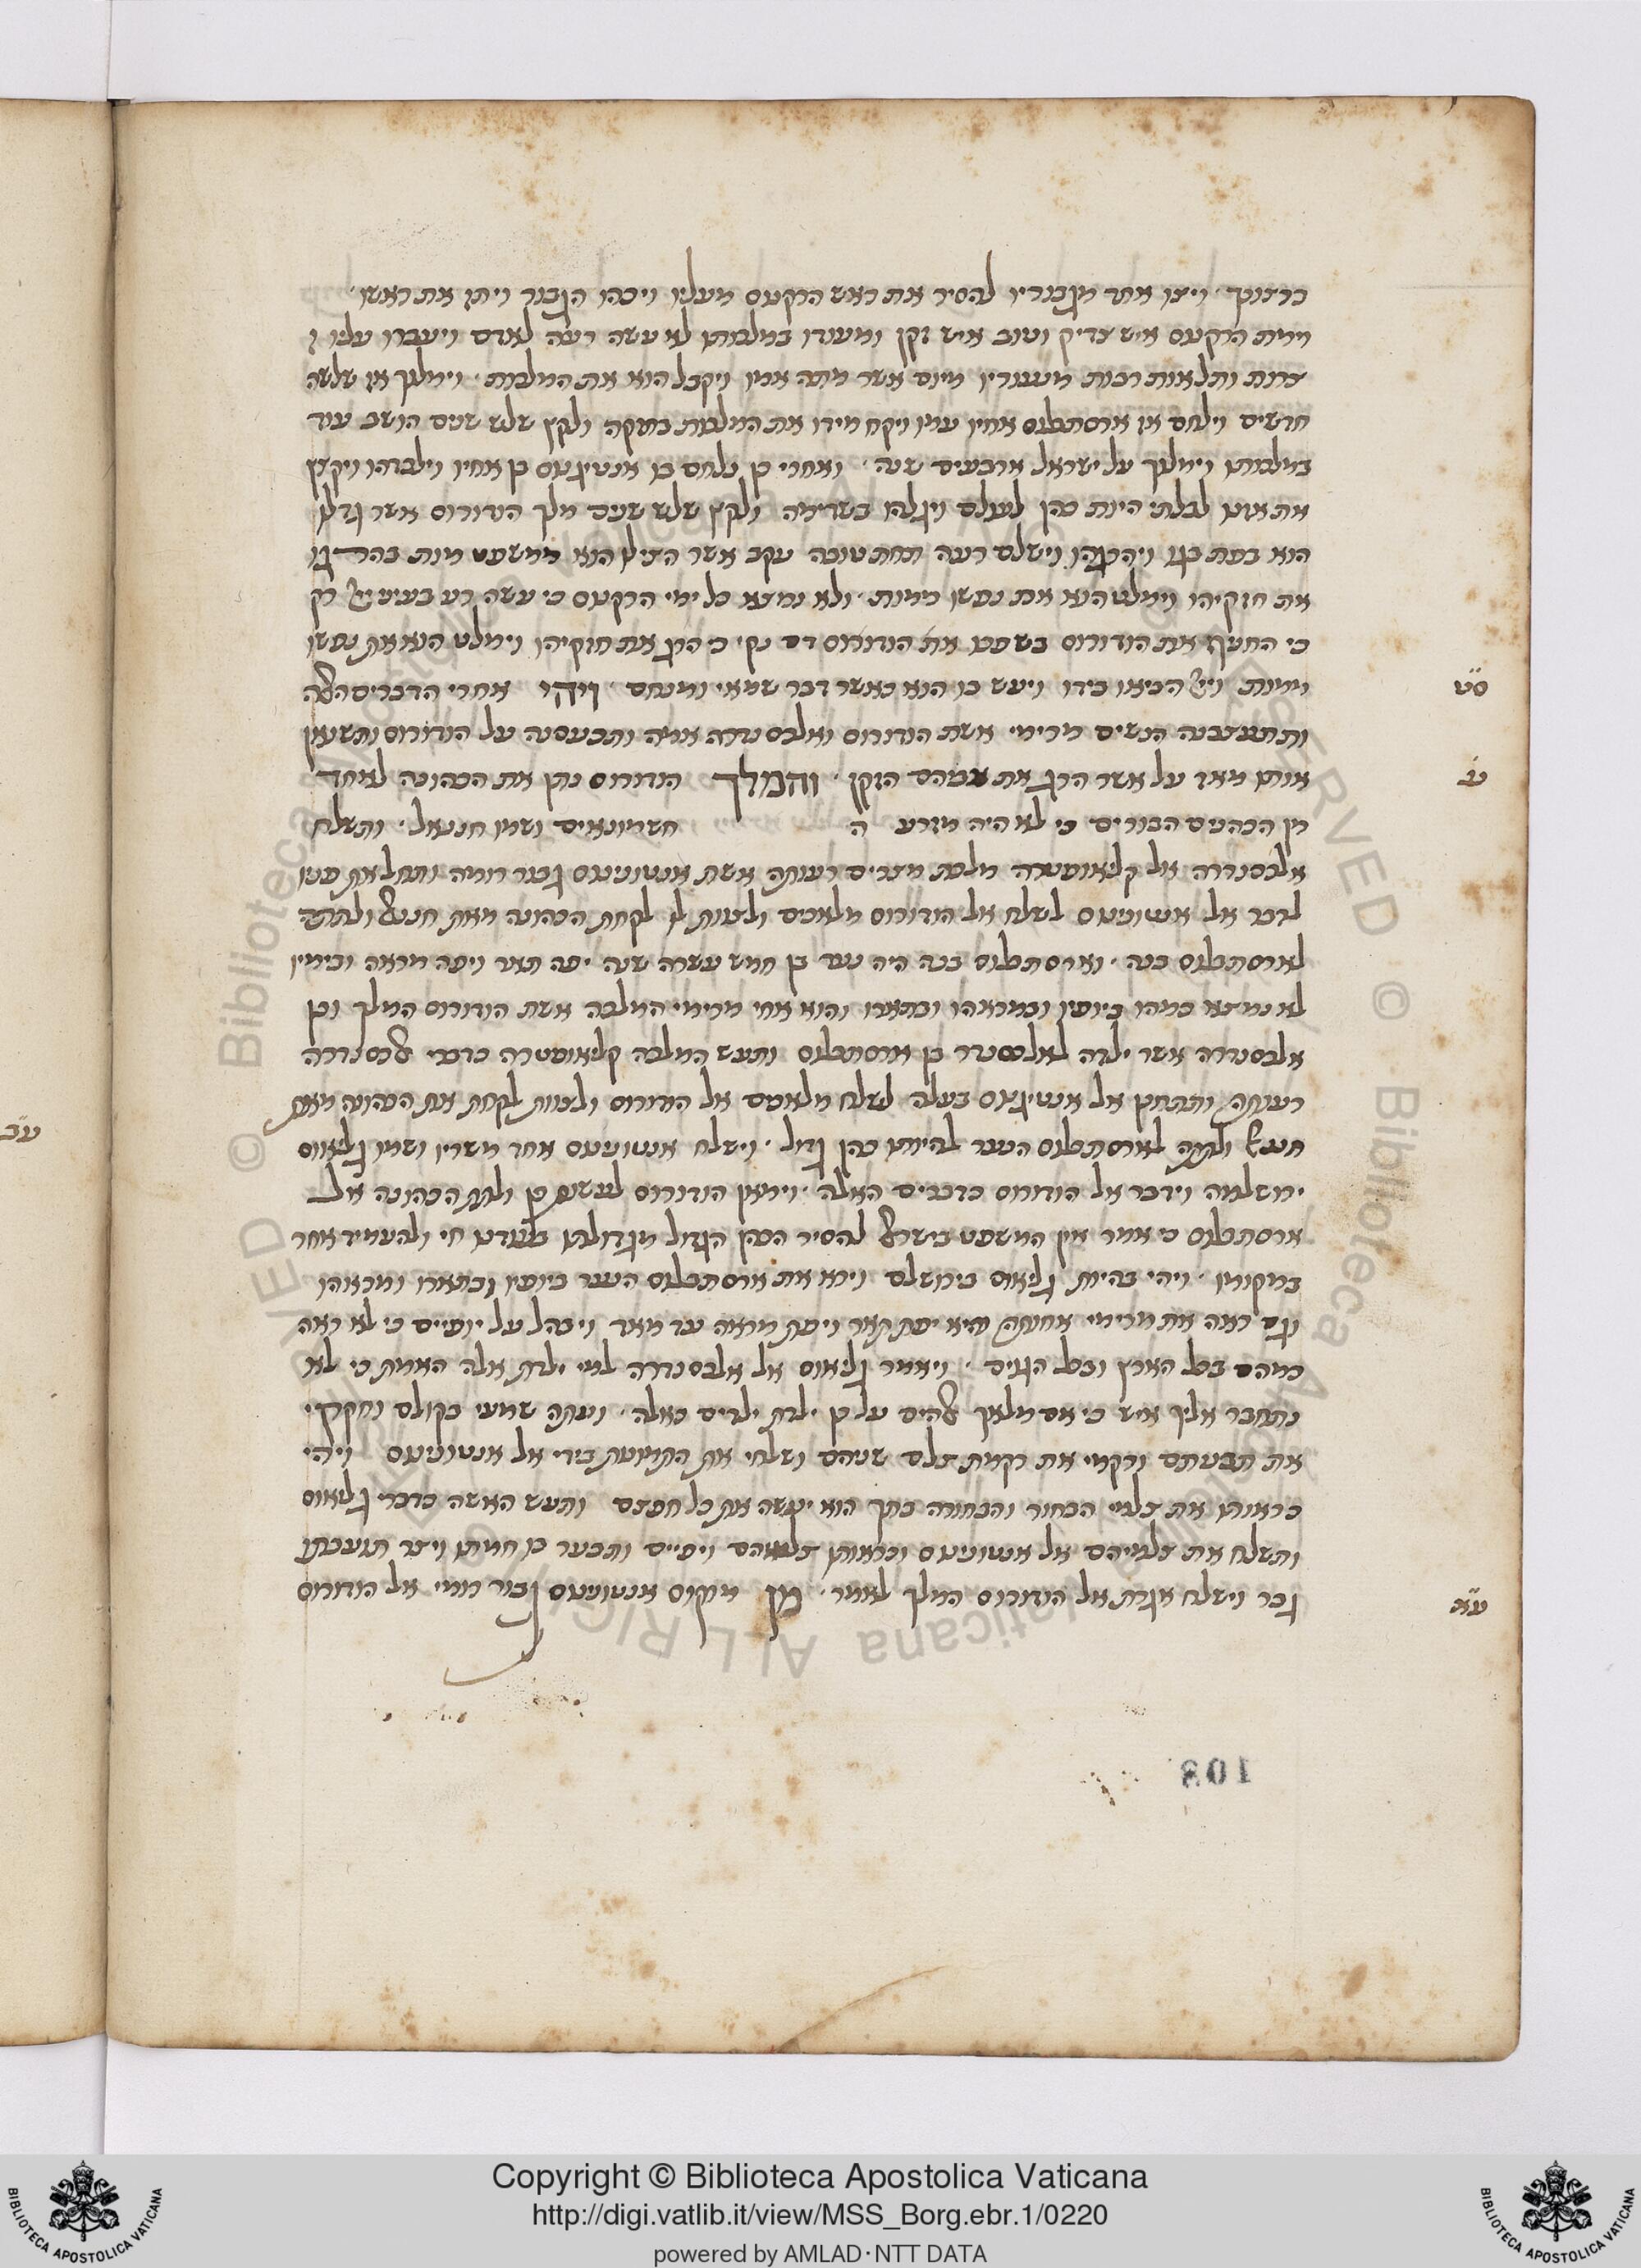 כרצונך ויצו אחד מגבוריו להסיר את ראש הרקנוס מעליו ויכהו הגבור ויתז את ראשו
וימת הרקנוס איש צדיק וטוב איש זקן ומעודו במלכותו לא עשה רעה לאדם ויעברו עליו
צרות ותלאות רבות מנעוריו מיום אשר מתה אמו ויקבל הוא את המלכות וימלוך אז שלשה
חדשים וילחם אז ארסתבלוס אחיו עמו ויקח מידו את המלכות בחזקה ולקץ שלש שנים הושב עוד
במלכותו וימלוך על ישראל ארבעים שנה ואחרי כן נלחם בו אנטיגנוס בן אחיו וילכדהו ויקצץ
את אזנו לבלתי היות כהן לעולם ויגלהו ולקץ שלש שנים מלך הורודוס אשר גדלו
הוא כעת בנו ויהרגהו וישלם רעה תחת טובה עקב אשר הצילו הוא ממשפט מות בהרגו
את חזקיהו וימלט הוא את נפשו ממות ולא נמצא כל ימי הרקנוס כי עשה רע בעיני רק
כי החניף את הורודוס בשפטו את הורודוס דם נקי כי הרג את חזקיהו וימלט הוא את נפשו
ממות הביאו בידו ויעש בו הוא כאשר דבר שמאי ומנחם ויהי אחרי הדברים האלה
סט
ותתעצבנה הנשים מרימי אשת הורודוס ואלכסנדרה אמה ותכעסנה על הורודוס ותשנאן
אותו מאד על אשר הרג את אביהם הזקן והמלך הורודוס נתן את הכהונה לאחד
ע
מן הכהנים הבורים כי לא היה מזרע ה חשמונאים ושמו חננאל ותשלח
אלכסנדרה אל קליאופטרה מלכת מצרים רעותה אשת אנטונינוס גבור רומה ותחל את פניו
לדבר אל אנטונינוס לשלח אל הורודוס מלאכים ולצות לו לקחת הכהונה מאת חננאל ולתתה
לארסתבלוס בנה וארסתבלוס בנה היה נער בן חמש עשרה שנה יפה תאר ויפה מראה ובימיו
לא נמצא כמהו ביופיו ובמראהו ובתארו והוא אחי מרימי המלכה אשת הורודוס המלך ובן
אלכסנדרה אשר ילדה לאלכסנדר בן ארסתבלוס ותעש המלכה קליאופטרה כדברי אלכסנדרה
רעותה ותתחנן אל אנטיגנוס בעלה לשלח מלאכים אל הורודוס ולצוות לקחת את הכהונה מאת
חננאל ולתתה לארסתבלוס הנער להיותו כהן גדול וישלח אנטונינוס אחד משריו ושמו גליאוס
ירושלמה וידבר אל הורודוס כדברים האלה וימאן הורודוס לעשות כן ולתת הכהונה אל
ארסתבלוס כי אמר אין המשפט בישראל להסיר הכהן הגדול מגדולתו בעודנו חי ולהעמיד אחר
במקומו ויהי בהיות גליאוס בירושלם וירא את ארסתבלוס הנער ביופיו ובתארו ומראהו
וגם ראה את מרימי אחותה והיא יפת תאר ויפת מראה עד מאד ויבהל על יופיים כי לא ראה
כמהם בכל הארץ ובכל הגוים ויאמר גליאוס אל אלכסנדרה למי ילדת אלה האמת כי לא
נתחבר אליך איש כי אם מלאך אלהים על כן ילדת ילדים כאלה ועתה שמעי בקולם וחקקי
את תבניתם ורקמי את רקמת צלם שניהם ושלחי את התמונות בידי אל אנטונינוס ויהי
כראותו את צלמי הבחור והבחורה בתך הוא יעשה את כל חפצם ותעש האשה כדברי גליאוס
ותשלח את צלמיהם אל אנטונינוס וכראותו צלמיהם ויפיים ותבער בו חמתו ויצר תועבתו
גבר וישלח אגרת אל הורודוס המלך לאמר מן מרקוס אנטונינוס גבור רומי אל הורודוס
עא
עב
108
Copyright © Biblioteca Apostolica Vaticana
http://digi.vatlib.it/view/MSS_Borg.ebr.1/0220
powered by AMLAD·NTT DATA